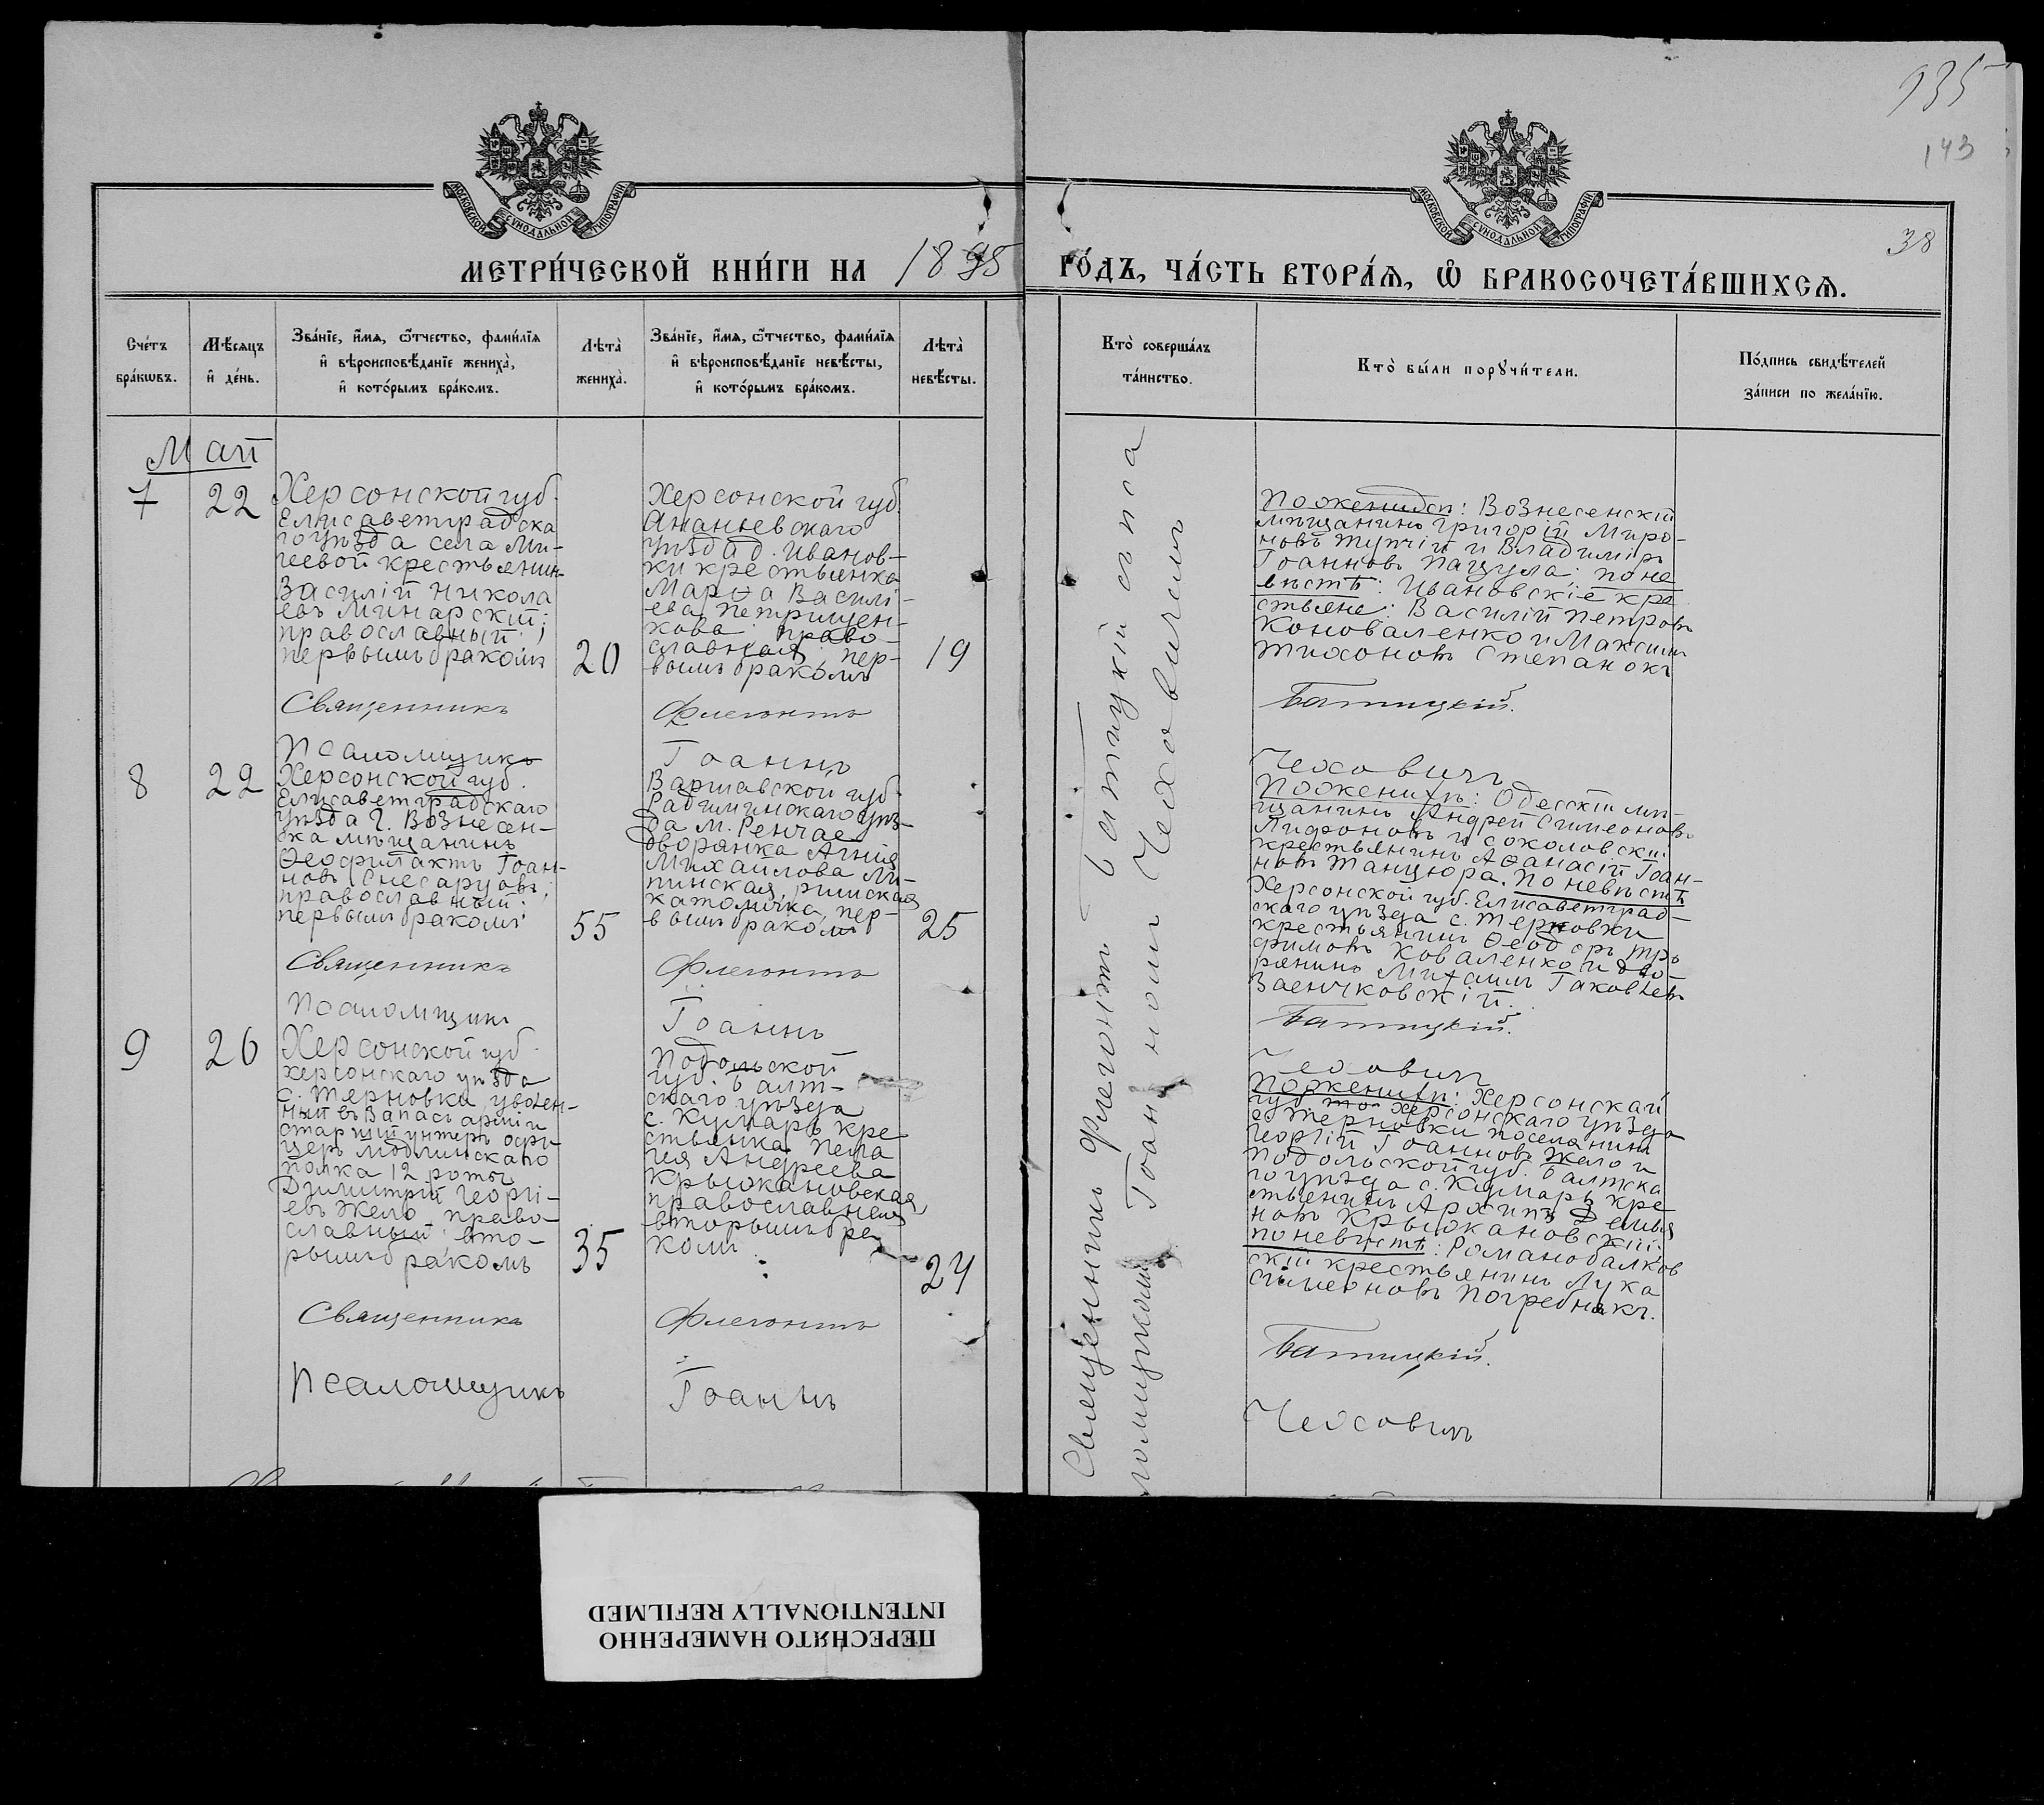 935
143
38
МОСКОВСКОЙ СѴНОДАЛЬНОЙ ТИПОГРАФІИ
МОСКОВСКОЙ СѴНОДАЛЬНОЙ ТИПОГРАФІИ
МЕТРИ́ЧЕСКОЙ КНИ́ГИ НА 1895 ГО́ДЪ, ЧА́СТЬ ВТОРА́Я, Ѡ БРАКОСОЧЕТА́ВШИХСЯ.
Сче́тъ
бра́кѡвъ.
Мѣ́сяцъ
и҆ де́нь.
Зва́нїе, и҆́мя, ѻ҆́тчество, фами́лїя
и҆ вѣроисповѣ́данїе жениха̀,
и҆ кото́рымъ бра́комъ.
Лѣта̀
жениха̀.
Зва́нїе, и҆́мя, ѻ҆́тчество, фами́лїя
и҆ вѣроисповѣ́данїе невѣ́сты,
и҆ кото́рымъ бра́комъ.
Лѣта̀
невѣ́сты.
Кто̀ соверша́лъ
та́инство.
Кто̀ бы́ли порꙋчи́тели.
По́дпись свидѣ́телей
за́писи по жела́нїю.
Май
7
22
Херсонской губ.
Елисаветградска
го уѣзда села Ми-
геевой крестьянин
Василій Никола
евъ Минарскій;
православный;
первымъ бракомъ
20
Херсонской губ.
Ананьевскаго
уѣзда д. Иванов-
ки крестьянка
Марѳа Василі-
ева Петрищен-
кова право-
славная пер-
вымъ бракомъ
19
Священникъ Флегонтъ
Псаломщикъ Іоаннъ
Поженихѣ: Вознесенскій
мѣщанинъ Григорій Миро-
новъ Тупчій и Владиміръ
Іоанновъ Пацула; поне
вѣстѣ: Ивановскіе кре
стьяне: Василій Петровъ
Коноваленко и Максим
Тихоновъ Степанокъ
Батицкій.
Чеховичъ
8
22
Херсонской губ.
Елисаветградскаго
уѣзда г. Вознесен-
ска мѣщанинъ
Ѳеофилактъ Іоан-
новъ Снесаруовъ;
православный;
первымъ бракомъ
55
Варшавской губ.
Радиминскаго уѣз-
да м. Ренчае
дворянка Агнія
Михайлова Ли-
пинская, римская
католичка, пер-
вымъ бракомъ
25
Священникъ Флегонтъ
Псаломщикъ Іоаннъ
Поженихѣ: Одесскій мѣ-
щанинъ Андрей Симеоновъ
Лифоновъ и соколовскій
крестьянинъ Аѳанасій Іоан-
новъ Танцюра. По невѣстѣ
Херсонской губ. Елисаветград-
скаго уѣзда с. Терновки
крестьянинъ Ѳеодоръ Тро
фимовъ Коваленко и дво-
рянинъ Михаилъ Іаковлевъ
Заенчковскій.
Батицкій.
Чеховичъ
9
26
Херсонской губ.
херсонскаго уѣзда
с. Терновки уволен-
ный въ запасъ арміи
старшій унтеръ офи-
церъ Модлинскаго
полка 12 роты
Димитрій Георгі-
евъ Жело право-
славный вто-
рымъ бракомъ
35
Подольской
губ. Балт-
скаго уѣзда
с. Кумаръ кре
стьянка Пела
гея Андреева
Крыжановская,
православная
вторымъ бра
комъ
24
Священникъ Флегонтъ
Псаломщикъ Іоаннъ
Поженихѣ: Херсонской
губ. то Херсонскаго уѣзда
с. Терновки поселянинъ
Георгій Іоанновъ Жело и
Подольской губ. Балтска
го уѣзда с. Кумаръ кре
стьянинъ Архипъ Демья
новъ Крыжановскій.
поневѣстѣ: Романобалков
скій крестьянинъ Лука
Симеоновъ Погребнякъ.
Батицкій.
Чеховичъ
Священникъ Флегонтъ Батицкій съ пса
ломщикомъ Іоанномъ Чеховичемъ
ПЕРЕСНЯТО НАМЕРЕННО
INTENTIONALLY REFILMED